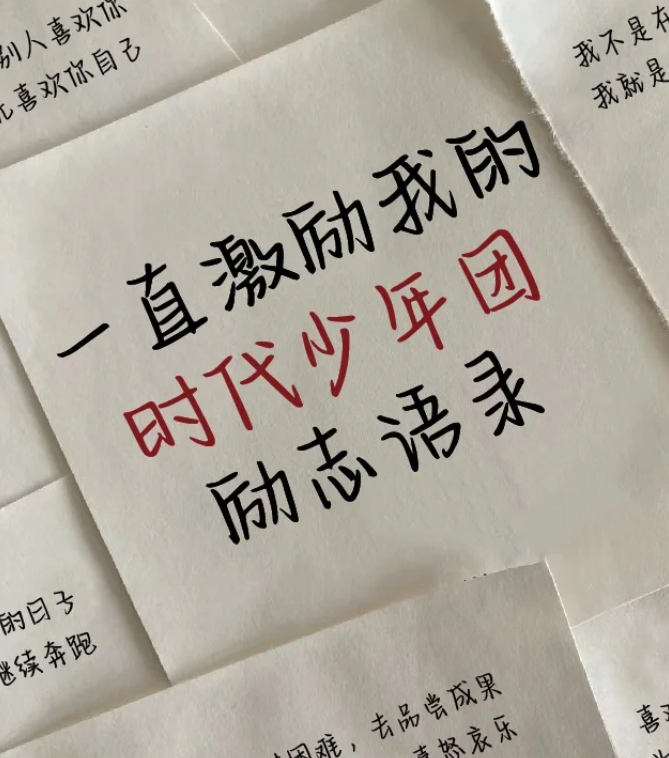 别人喜欢你
喜欢你自己
我不是在
我就是
一直激励我的
时代少年团
励志语录
的日子
继续奔跑
困难，去品尝成果
喜怒哀乐
喜